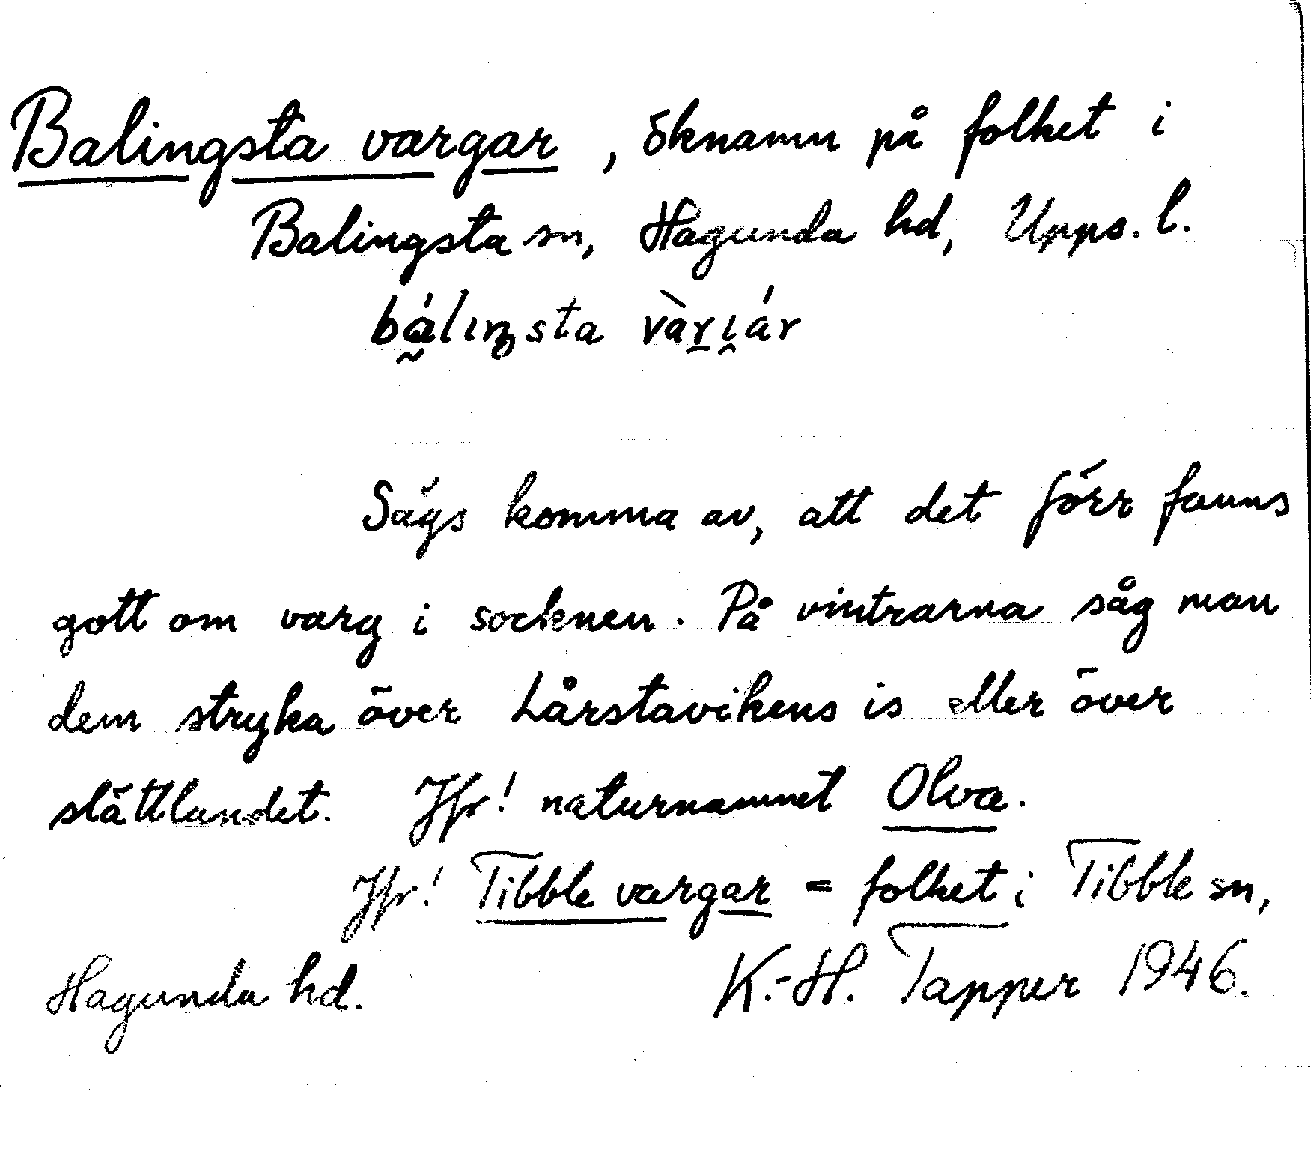 Balingsta vargar, öknamn på folket i
Balingsta sn, Hagunda hd, Upps. l.
bálıŋsta vàrı̯ár
Sägs komma av, att det förr fanns
gott om varg i socknen. På vintrarna såg man
dem stryka över Lårstavikens is eller över
slättlandet. Jfr! naturnamnet Olva.
Jfr! Tibble vargar = folket i Tibble sn,
Hagunda hd. K.-H. Tapper 1946.